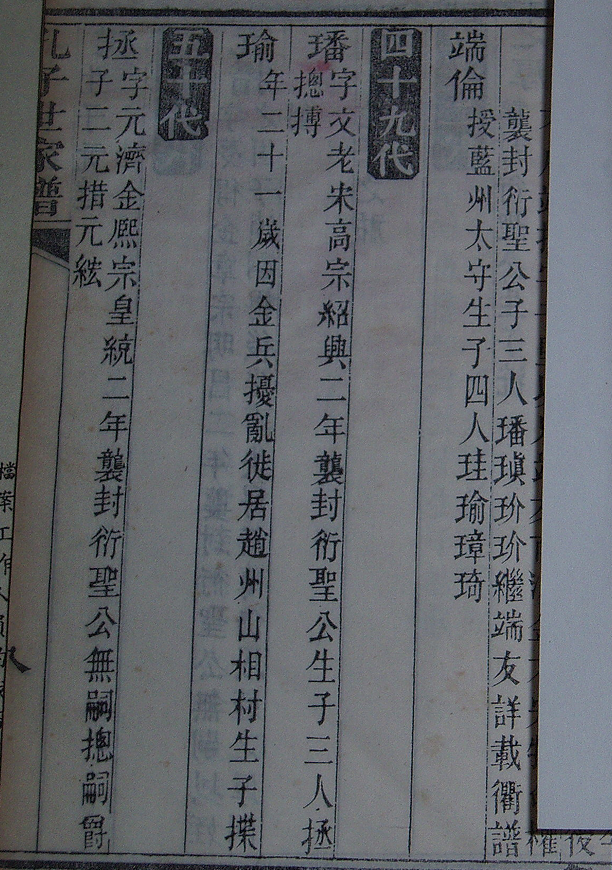 襲封衍聖公子三人璠瑱玠玠繼端友詳載衢譜
端倫
授藍州太守生子四人珪瑜璋琦
四十九代
璠
字文老宋高宗紹興二年襲封衍聖公生子三人拯
摠摶
瑜
年二十一歲因金兵擾亂徙居趙州山相村生子揲
五十代
拯
字元濟金熈宗皇統二年襲封衍聖公無嗣摠嗣爵
子二元措元紘
孔子世家譜